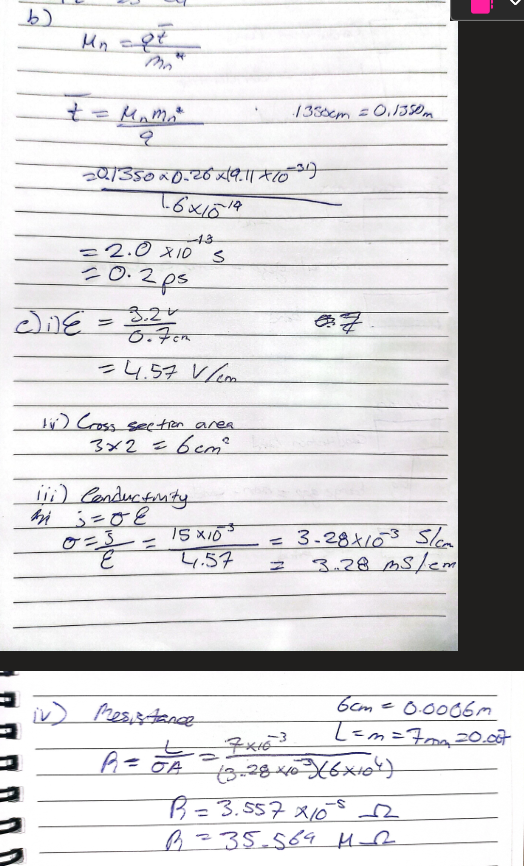 b)
μn = qt̄ / mn*
t̄ = μn mn* / q
1350cm = 0,1350m
= 0.1350 x 0.26 x (9.11 x 10^-31) / 1.6 x 10^-19
= 2.0 x 10^-13 s
= 0.2 ps
c) i) E = 3.2v / 0.7cm
= 4.57 V/cm
ii) Cross section area
3 x 2 = 6 cm²
iii) Conductivity
j = σ E
σ = j / E = 15 x 10^-3 / 4.57 = 3.28 x 10^-3 S/cm
= 3.28 mS/cm
iv) Resistance
6cm = 0.0006m
L = m = 7mm = 0.007
R = L / σA = 7 x 10^-3 / (3.28 x 10^-3)(6 x 10^4)
R = 3.557 x 10^-5 Ω
R = 35.569 μΩ